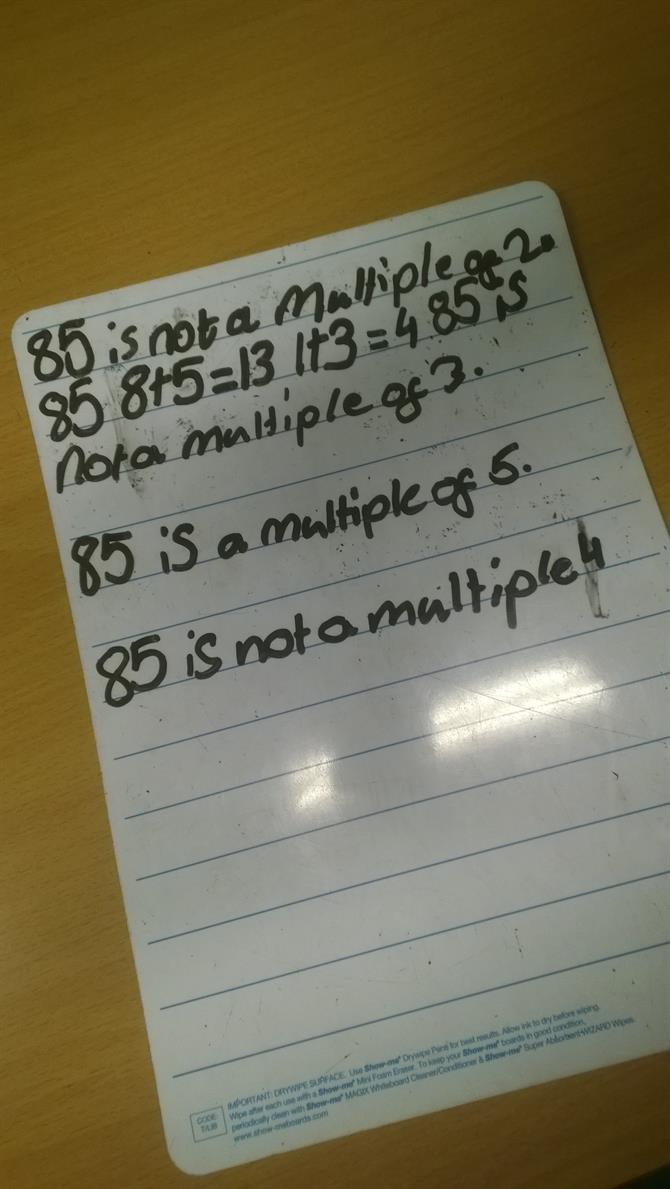 85 is not a multiple of 2.
85 8+5=13 1+3=4 85 is
not a multiple of 3.
85 is a multiple of 5.
85 is not a multiple 4
CODE: T/LIB
IMPORTANT: DRYWIPE SURFACE. Use Show-me® Drywipe Pens for best results. Allow ink to dry before wiping.
Wipe after each use with a Show-me® Mini Foam Eraser. To keep your Show-me® boards in good condition,
periodically clean with Show-me® MAGIX Whiteboard Cleaner/Conditioner & Show-me® Super Absorbent WIZARD Wipes.
www.show-meboards.com